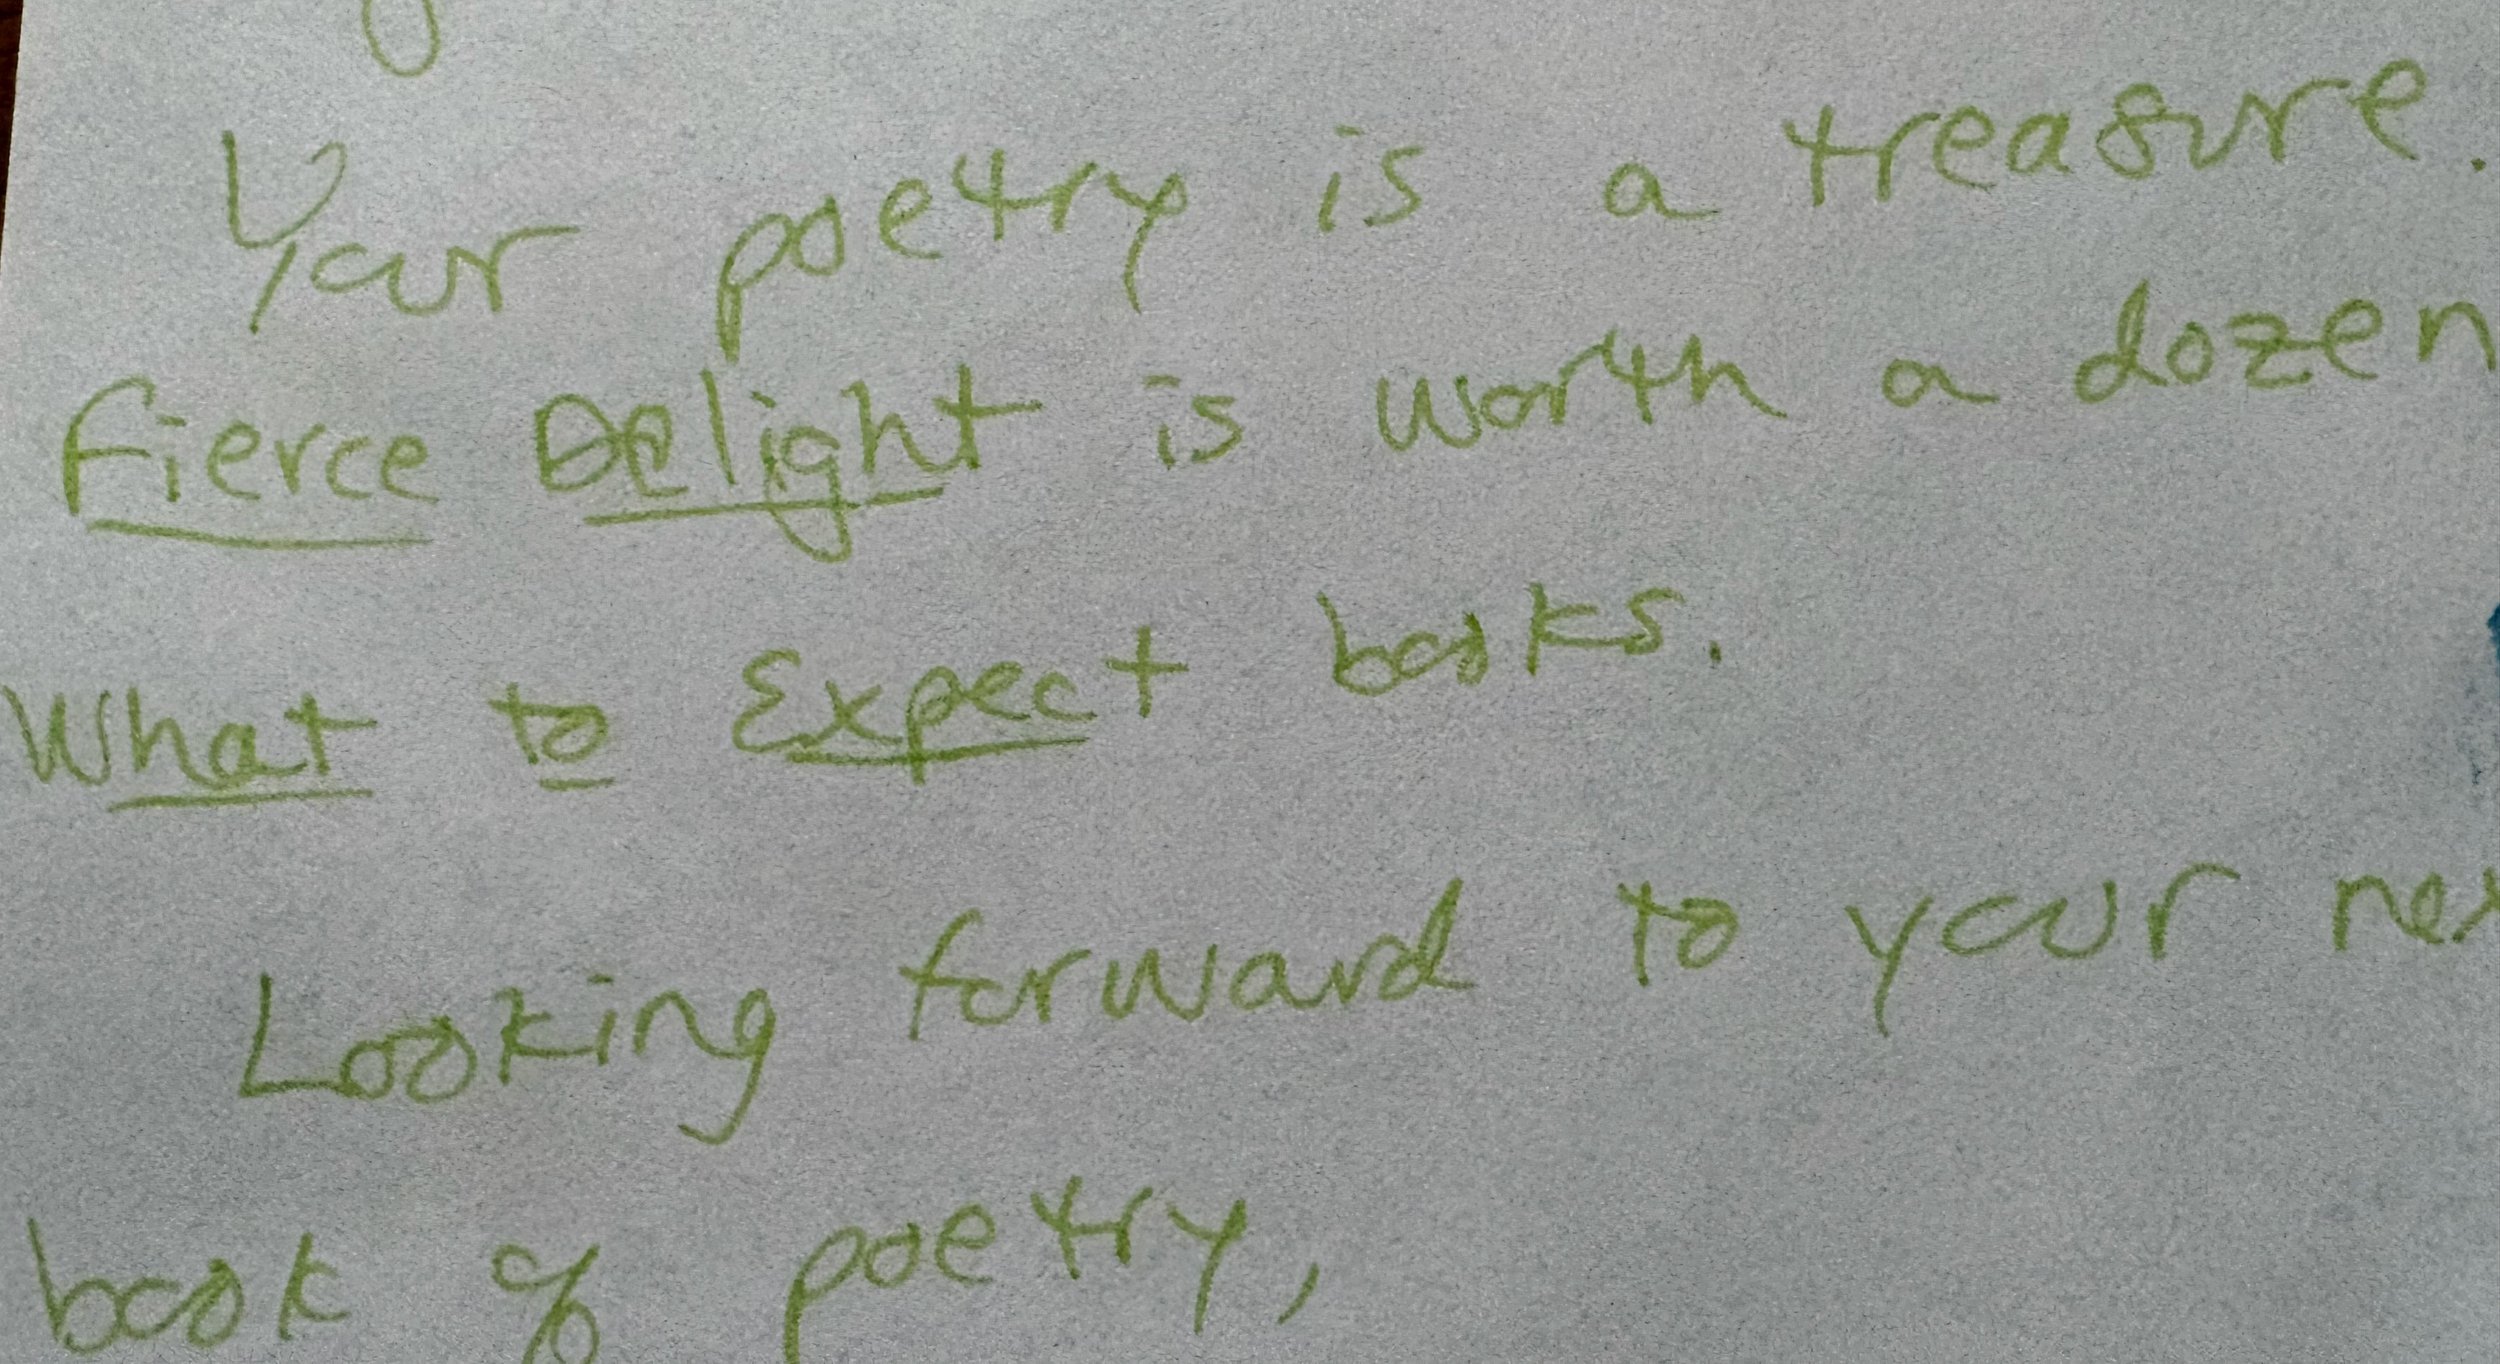 Your poetry is a treasure.
Fierce Delight is worth a dozen
What to Expect books.
Looking forward to your
book of poetry,